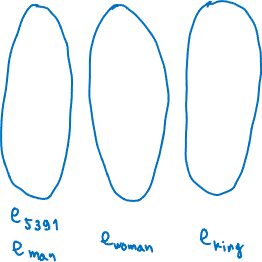 e5391
eman
ewoman
eking